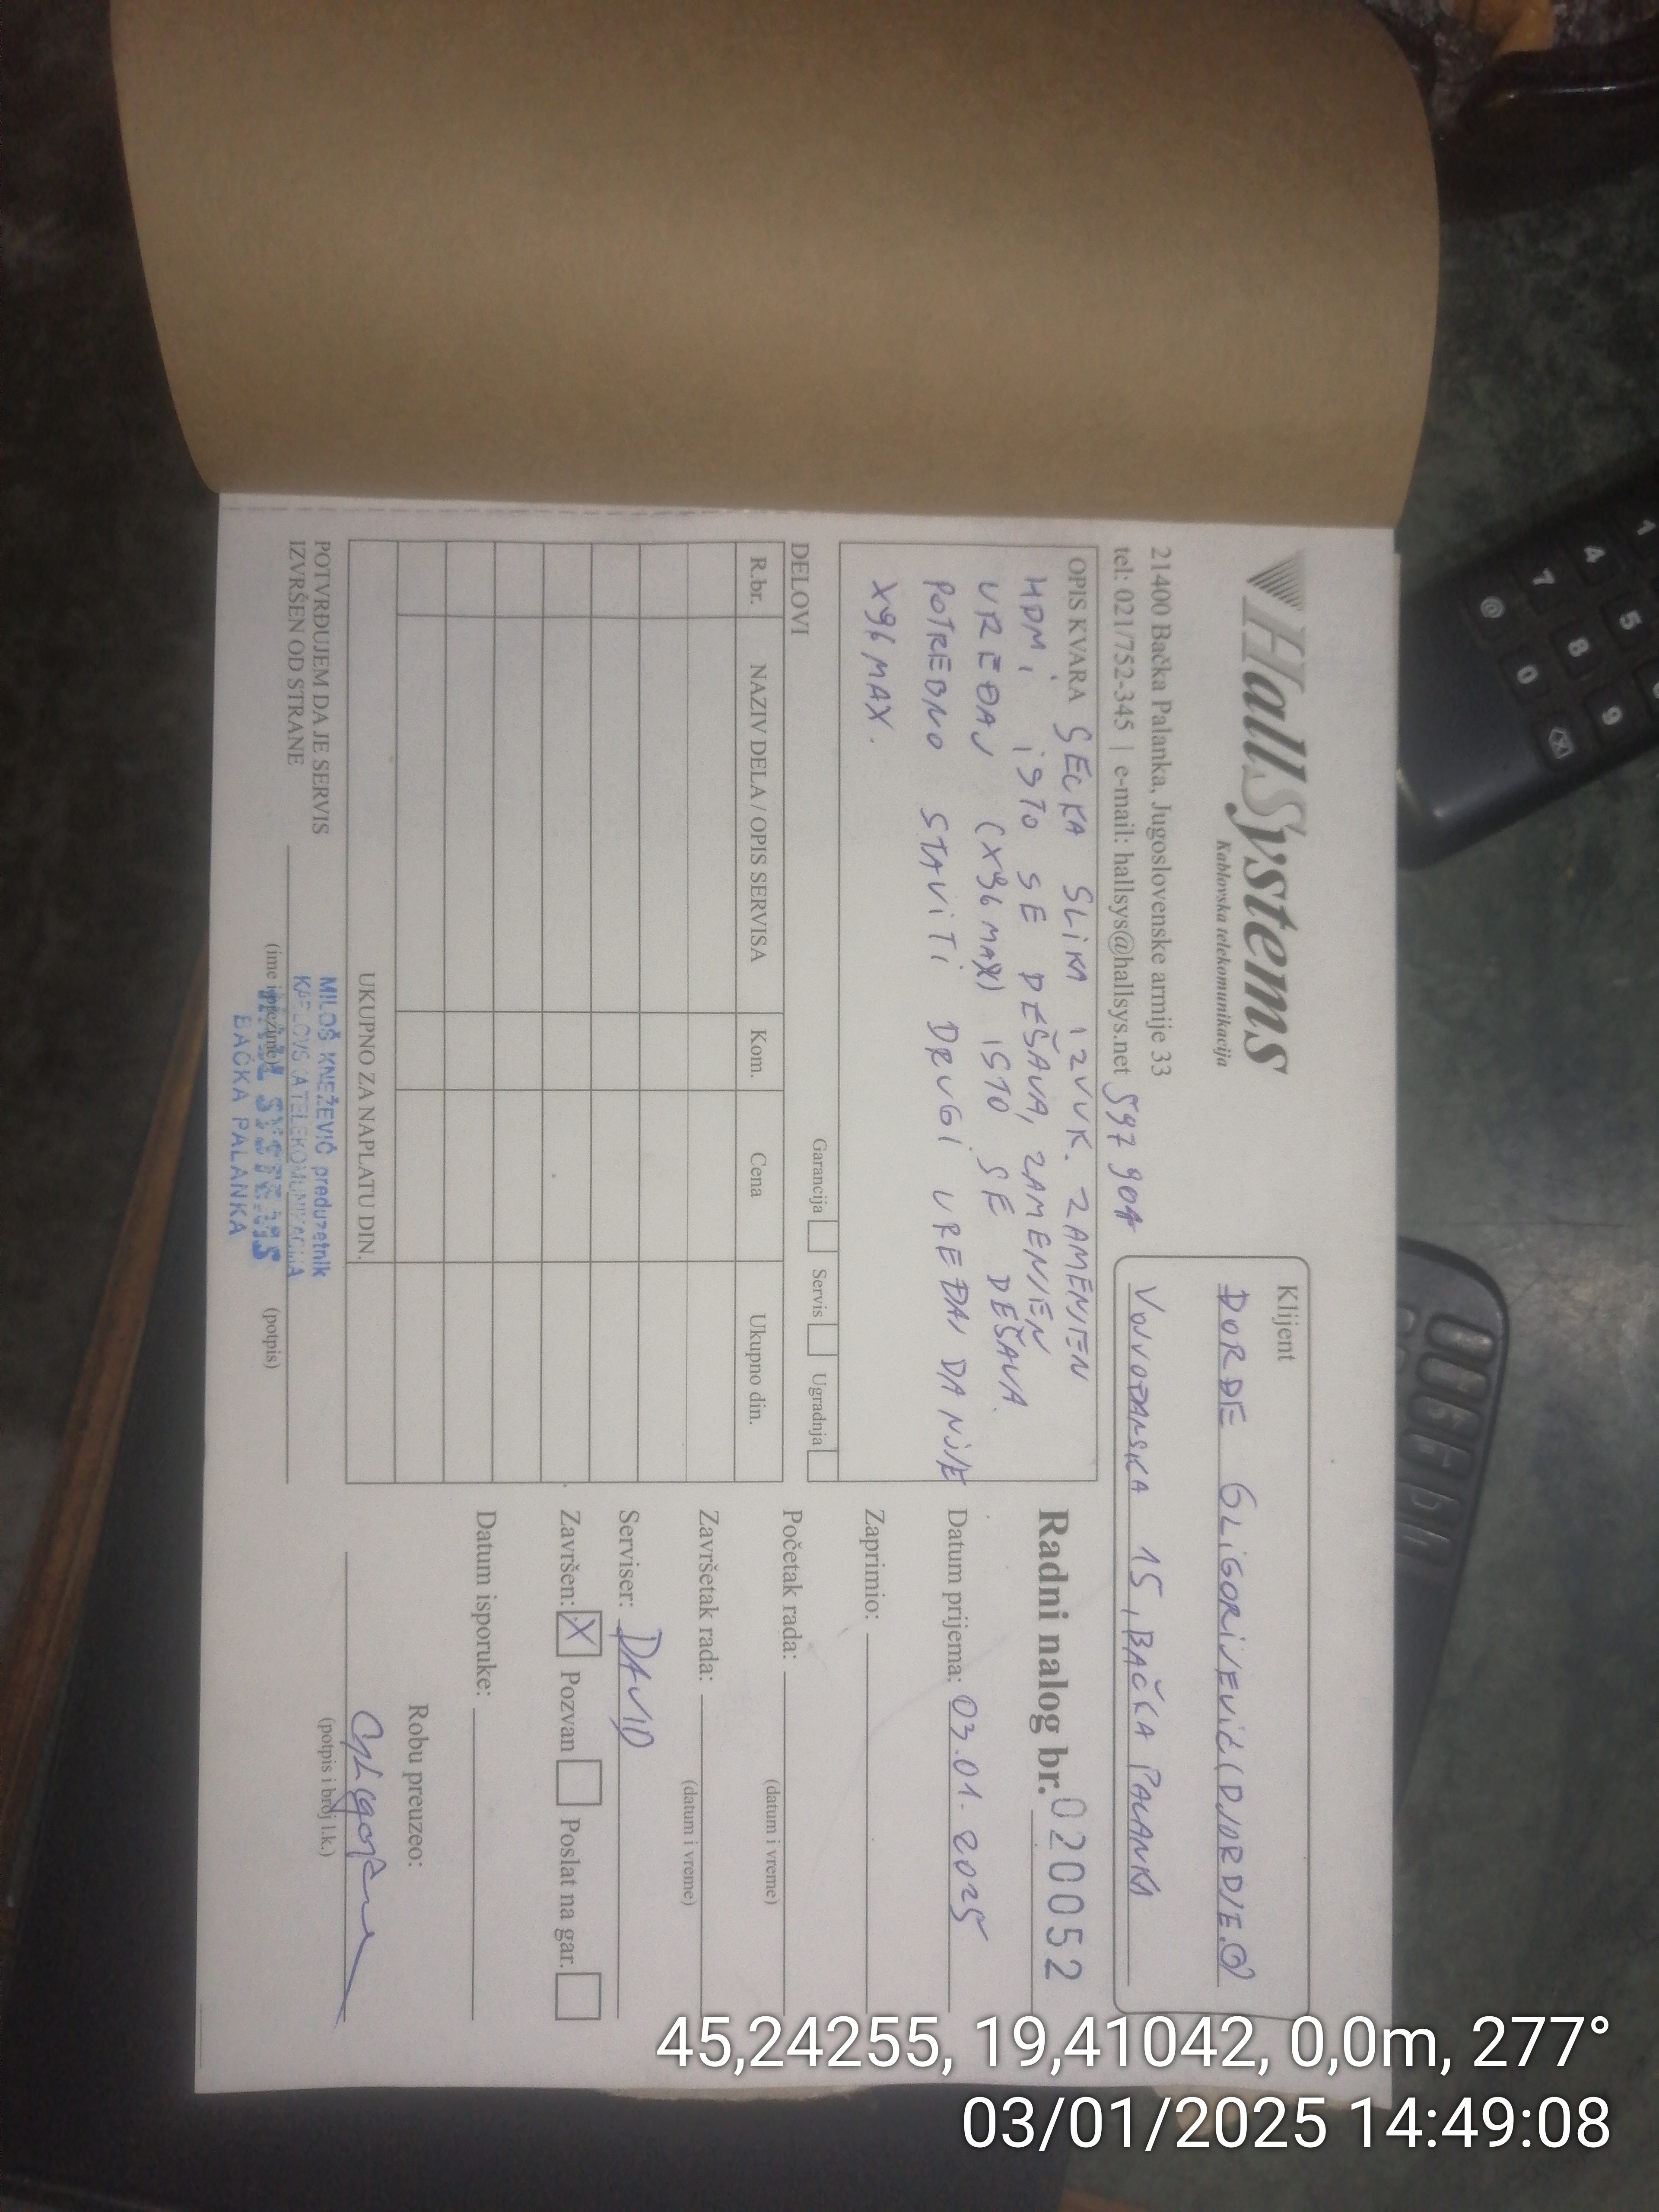 HallSystems
Kablovska telekomunikacija
21400 Bačka Palanka, Jugoslovenske armije 33
tel: 021/752-345 | e-mail: hallsys@hallsys.net
597 904
Klijent
ĐORĐE GLIGORIJEVIĆ (DJORDJE.G)
VOJVOĐANSKA 15, BAČKA PALANKA
OPIS KVARA SECKA SLIKA I ZVUK. ZAMENJEN
HDMI ISTO SE DEŠAVA, ZAMENJEN
UREĐAJ (X96 MAX) ISTO SE DEŠAVA.
POTREBNO STAVITI DRUGI UREĐAJ DA NIJE
X96 MAX.
Radni nalog br. 020052
Datum prijema: 03.01.2025
Zaprimio:
Početak rada:
(datum i vreme)
Završetak rada:
(datum i vreme)
Serviser: DAVID
Završen: X Pozvan Poslat na gar.
Datum isporuke:
Robu preuzeo:
(potpis i broj l.k.)
Garancija Servis Ugradnja
DELOVI
R.br. NAZIV DELA / OPIS SERVISA Kom. Cena Ukupno din.
UKUPNO ZA NAPLATU DIN.
POTVRĐUJEM DA JE SERVIS
IZVRŠEN OD STRANE
(ime i prezime) (potpis)
MILOŠ KNEŽEVIĆ preduzetnik
KABLOVSKA TELEKOMUNIKACIJA
HALL SYSTEMS
BAČKA PALANKA
1
4 5
7 8 9
@ 0
45,24255, 19,41042, 0,0m, 277°
03/01/2025 14:49:08